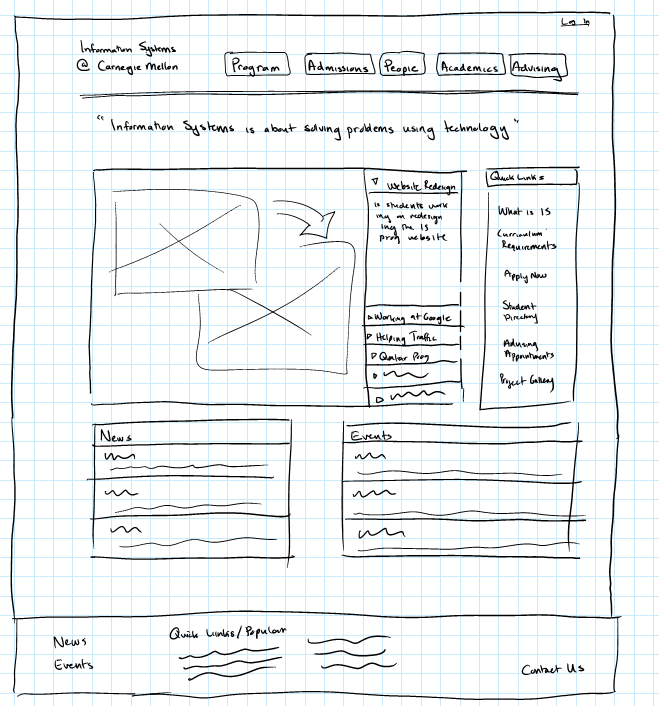 Log In
Information Systems
@ Carnegie Mellon
Program
Admissions
People
Academics
Advising
"Information Systems is about solving problems using technology"
Website Redesign
is students work
ing on redesign
ing the IS
prog website
Working at Google
Helping Traffic
Qatar Prog
Quick Links
What is IS
Curriculum
Requirements
Apply Now
Student
Directory
Advising
Appointments
Project Gallery
News
Events
News
Events
Quick Links/Popular
Contact Us